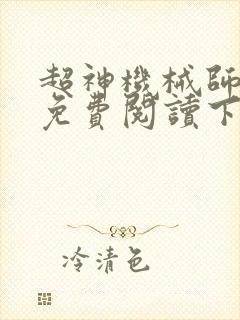 超神機械師
免費閱讀下
冷清色